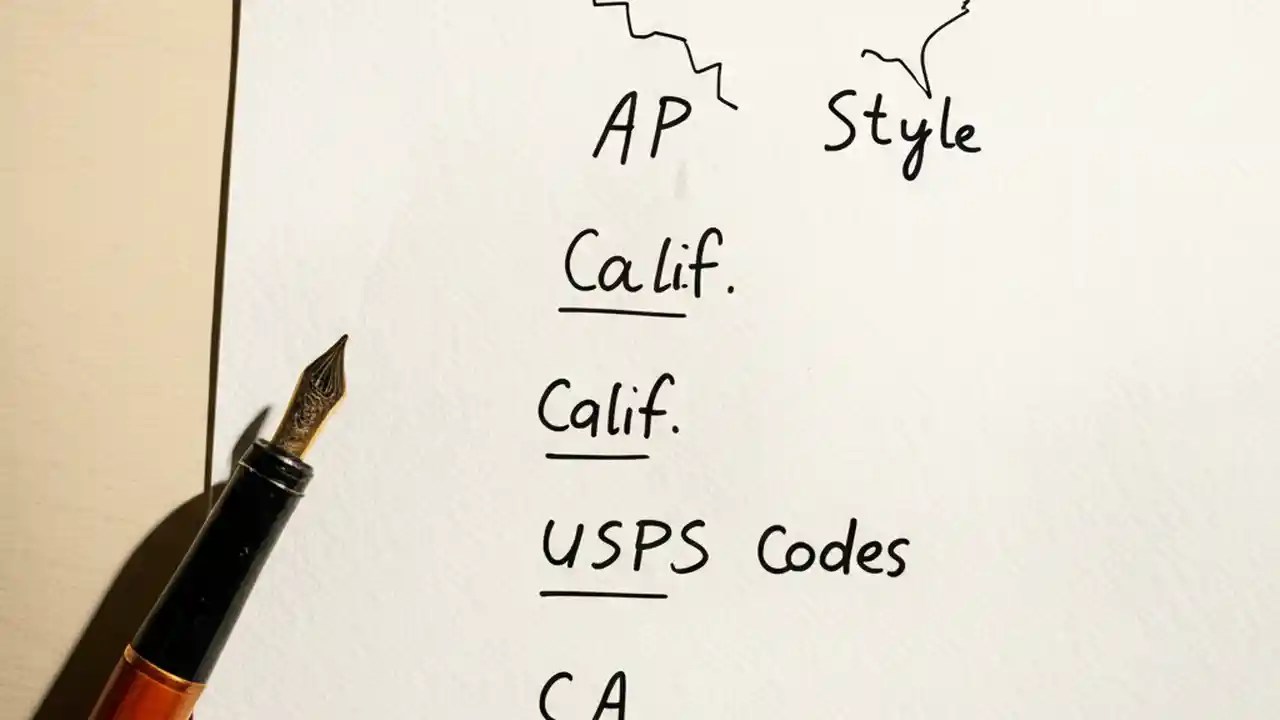 AP Style
Calif.
Calif.
USPS Codes
CA